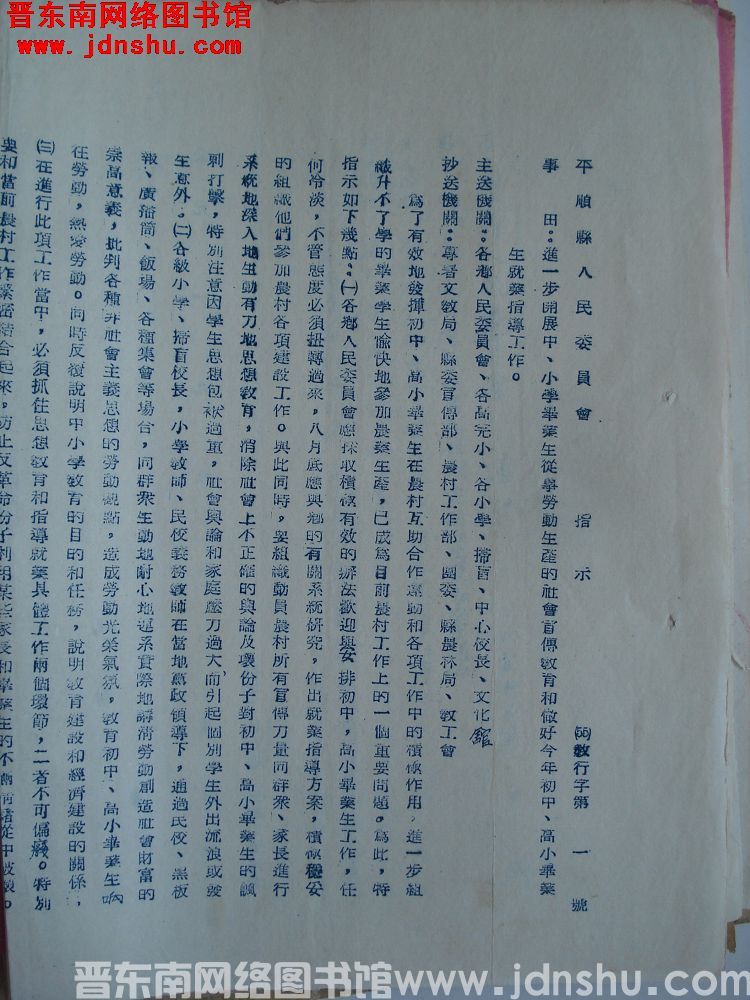 晋东南网络图书馆
www.jdnshu.com
平順縣人民委員會　指示　教行字第一號
事由：進一步開展中、小學畢業生從事勞動生產的社會宣傳教育和做好今年初中、高小畢業
生就業指導工作。
主送機關：各鄉人民委員會、各高完小、各小學、掃盲、中心校長、文化館
抄送機關：專署文教局、縣委宣傳部、農村工作部、團委、縣農林局、教工會
爲了有效地發揮初中、高小畢業生在農村互助合作運動和各項工作中的積極作用，進一步組
織升不了學的畢業學生愉快地參加農業生產，已成爲目前農村工作上的一個重要問題。爲此，特
指示如下幾點：㈠各鄉人民委員會應採取積極有效的辦法歡迎與安排初中，高小畢業生工作，任
何冷淡，不管態度必須扭轉過來，八月底應與鄉的有關系統研究，作出就業指導方案，積極穩妥
的組織他們參加農村各項建設工作。與此同時，要組織動員農村所有宣傳力量同群眾、家長進行
系統地深入地生動有力地思想教育，消除社會上不正確的輿論及壞份子對初中、高小畢業生的諷
刺打擊，特別注意因學生思想包袱過重，社會輿論和家庭壓力過大而引起個別學生外出流浪或發
生意外。㈡各級小學、掃盲校長，小學教師、民校義務教師在當地黨政領導下，通過民校、黑板
報、廣播筒、飯場、各種集會等場合，同群眾生動地耐心地連系實際地講清勞動創造社會財富的
崇高意義，批判各種非社會主義思想的勞動觀點，造成勞動光榮氣氛，教育初中、高小畢業生响
往勞動，熱愛勞動。同時反復說明中小學教育的目的和任務，說明教育建設和經濟建設的關係，
㈢在進行此項工作當中，必須抓住思想教育和指導就業具體工作兩個環節，二者不可偏廢。特別
要和當前農村工作緊密結合起來，防止反革命份子利用某些家長和畢業生的不滿情緒從中破壞。
晋东南网络图书馆www.jdnshu.com